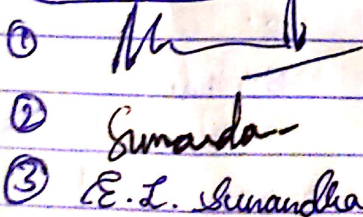 ①
② Sunanda
③ E. L. Sunandha